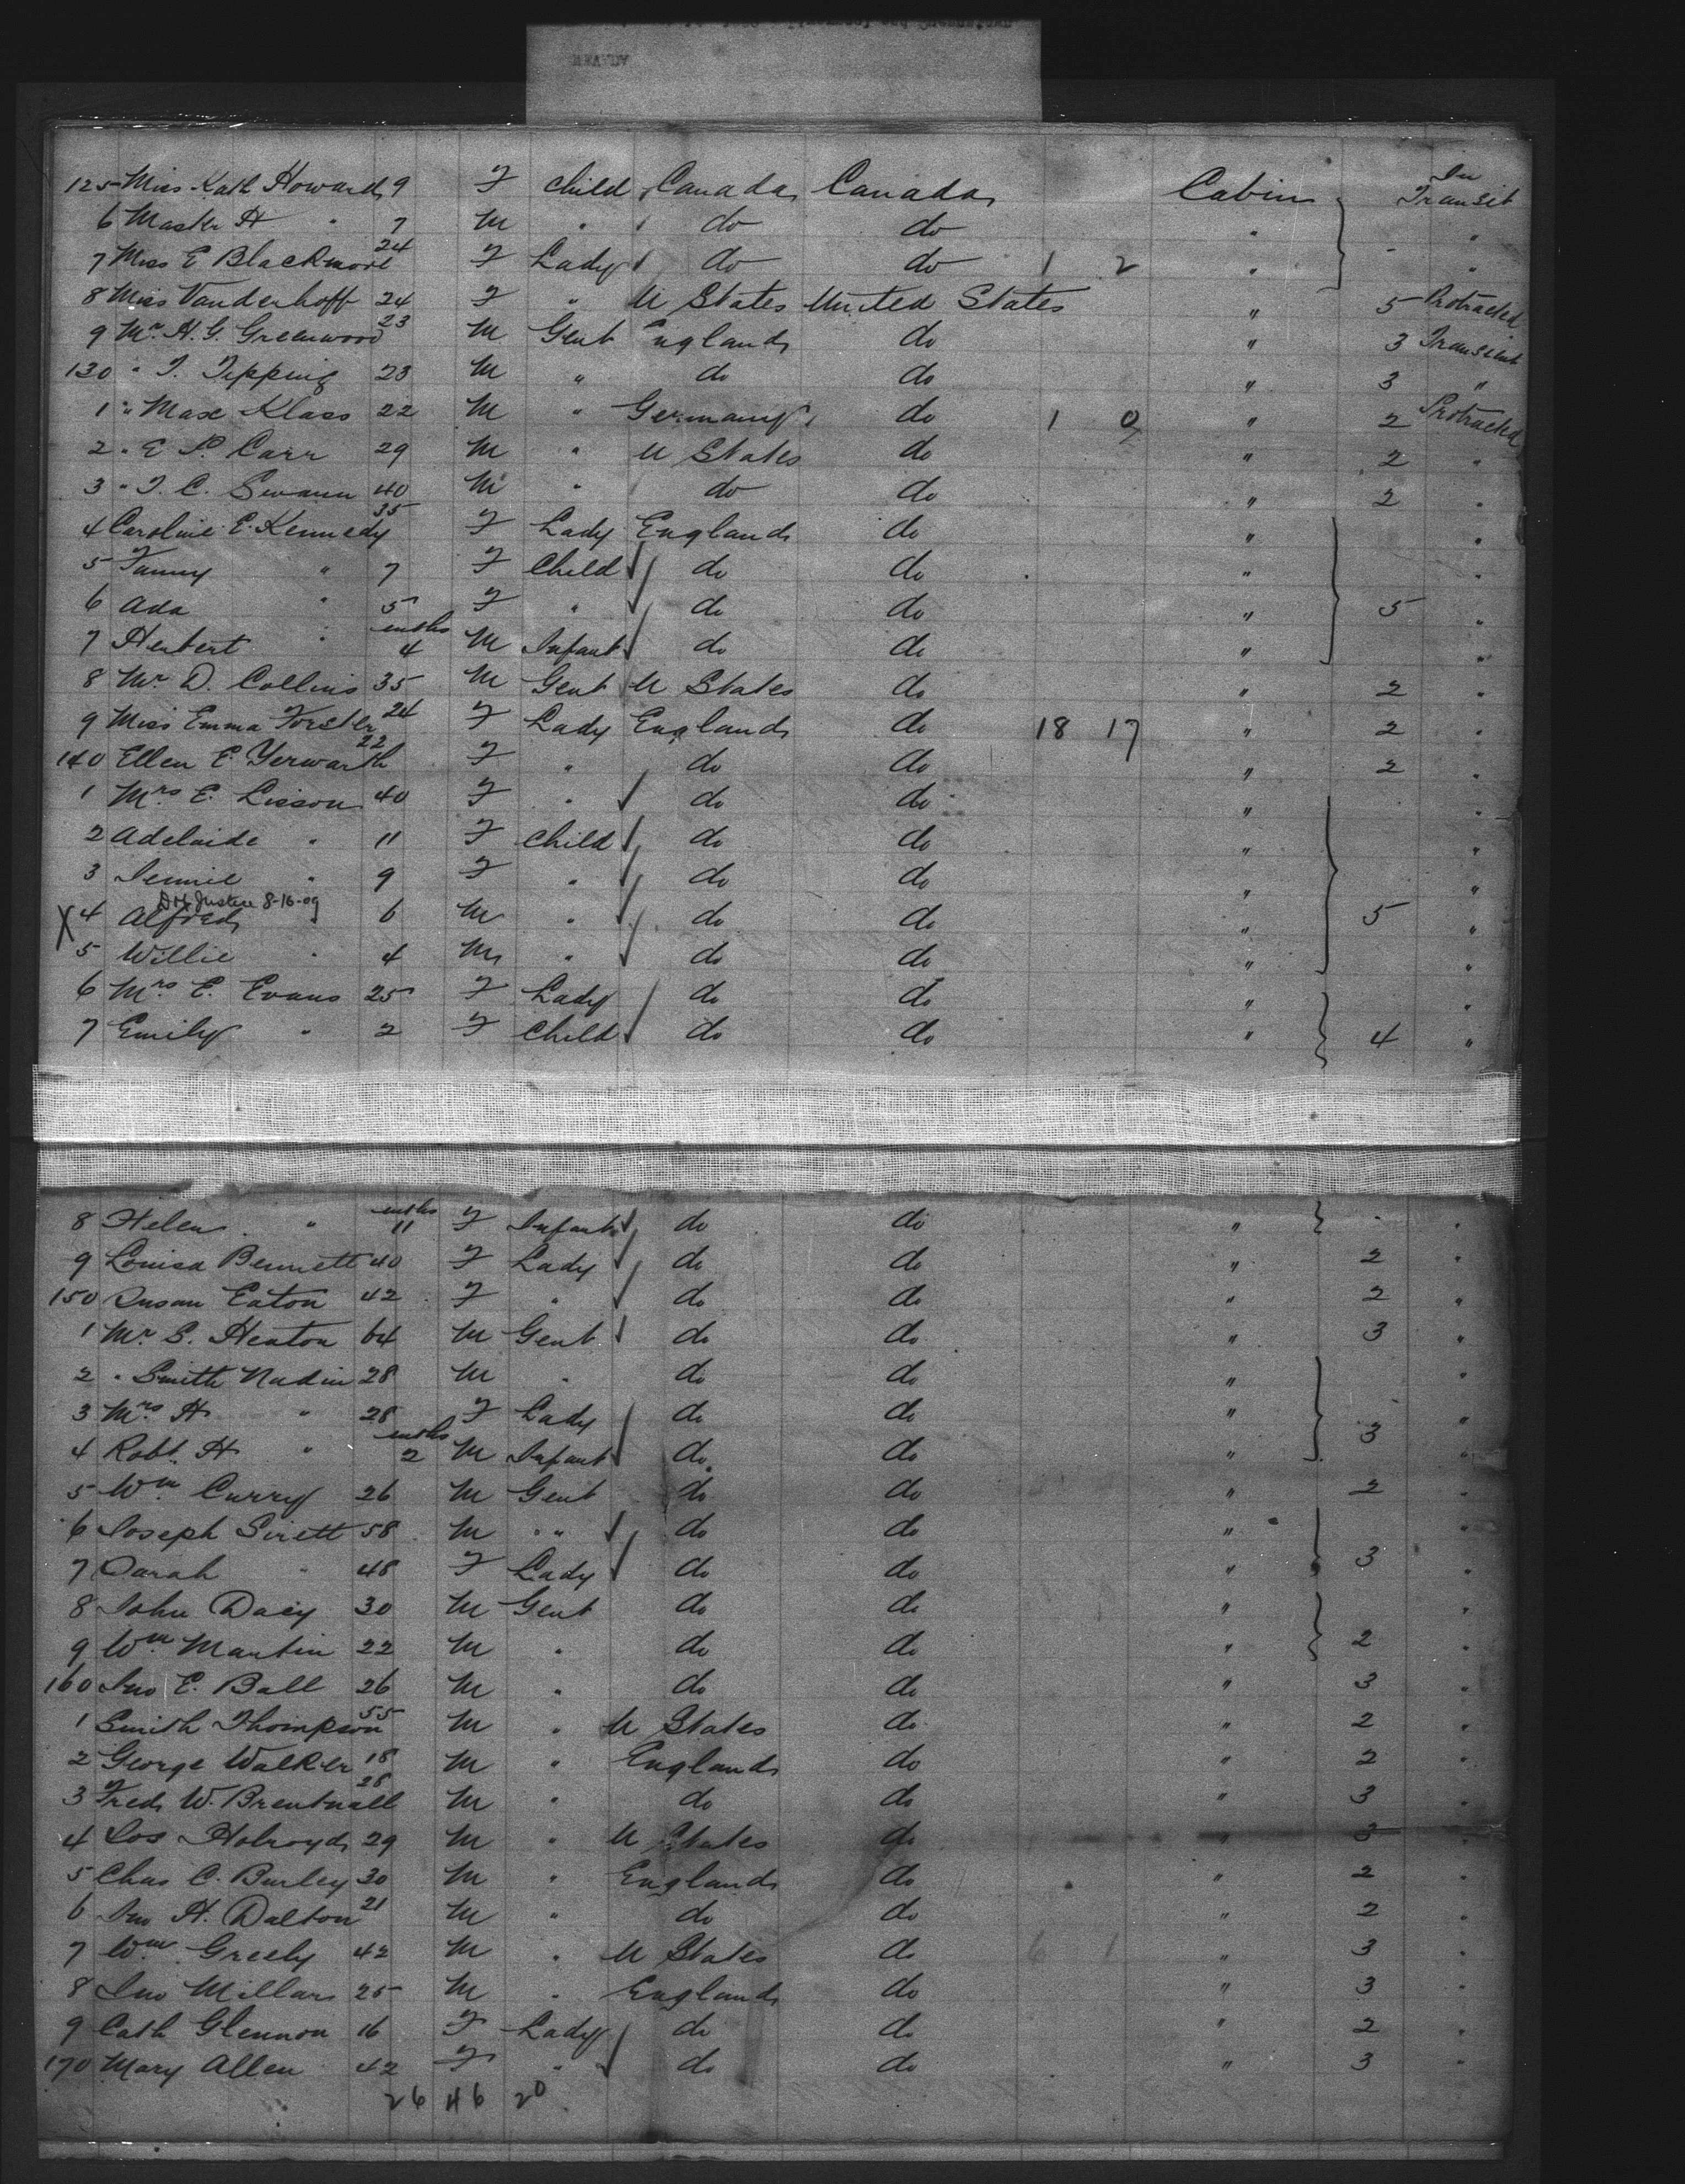 125 Miss Kath Howard 9 F Child Canada Canada Cabin In Transit
6 Master H " 7 M " do do " "
7 Miss E Blackmore 24 F Lady do do 1 2 " "
8 Miss Vanderhoff 24 F " U States United States " 5 Protracted
9 Mr. H. G. Greenwood 23 M Gent England do " 3 Transient
130 " T. Tipping 23 M " do do " 3 "
1 " Max Klass 22 M " Germany do 1 0 " 2 Protracted
2 " E P. Carr 29 M " U States do " 2 "
3 " T. C. Swann 40 M " do do " 2 "
4 Caroline E. Kennedy 35 F Lady England do " "
5 Fanny " 7 F Child do do " "
6 Ada " 5 F " do do " 5 "
7 Herbert " mths 4 M Infant do do " "
8 Mr D. Collins 35 M Gent U States do " 2 "
9 Miss Emma Forster 24 F Lady England do 18 17 " 2 "
140 Ellen E Yerwarth 22 F " do do " 2 "
1 Mrs E. Lisson 40 F " do do " "
2 Adelaide " 11 F Child do do " "
3 Jennie " 9 F " do do " "
Justice 8-16-09
X 4 Alfred " 6 M " do do " 5 "
5 Willie " 4 M " do do " "
6 Mrs E. Evans 25 F Lady do do " "
7 Emily " 2 F Child do do " 4 "
8 Helen " mths 11 F Infant do do " "
9 Louisa Bennett 40 F Lady do do " 2 "
150 Susan Eaton 42 F " do do " 2 "
1 Mr S. Heaton 64 M Gent do do " 3 "
2 " Smith Nadin 28 M " do do " "
3 Mrs H " 28 F Lady do do " "
4 Robt. H " mths 2 M Infant do do " 3 "
5 Wm Curry 26 M Gent do do " 2 "
6 Joseph Sirett 58 M " " do do " "
7 Sarah " 48 F Lady do do " 3 "
8 John Dacy 30 M Gent do do " "
9 Wm Martin 22 M " do do " 2 "
160 Jno E. Ball 26 M " do do " 3 "
1 Smith Thompson 55 M " U States do " 2 "
2 George Walker 18 M " England do " 2 "
3 Fred W. Brentnall 28 M " do do " 3 "
4 Jos Holroyd 29 M " U States do " 3 "
5 Chas C. Burley 30 M " England do " 2 "
6 Jno H. Dalton 21 M " do do " 2 "
7 Wm Greely 42 M " U States do 6 1 " 3 "
8 Jno Millar 25 M " England do " 3 "
9 Cath Glennon 16 F Lady do do " 2 "
170 Mary Allen 42 F " do do " 3 "
26 46 20